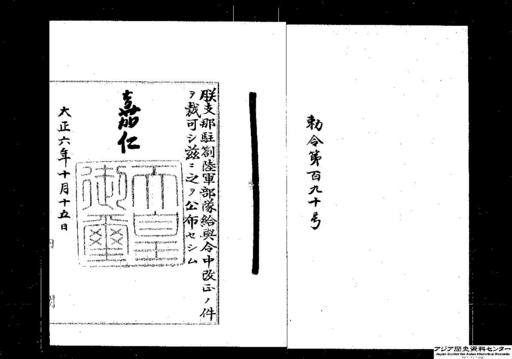 勅令第百九十号
朕支那駐劄陸軍部隊給與令中改正ノ件
ヲ裁可シ茲ニ之ヲ公布セシム
嘉仁
天皇御璽
大正六年十月十五日
アジア歴史資料センター
Japan Center for Asian Historical Records